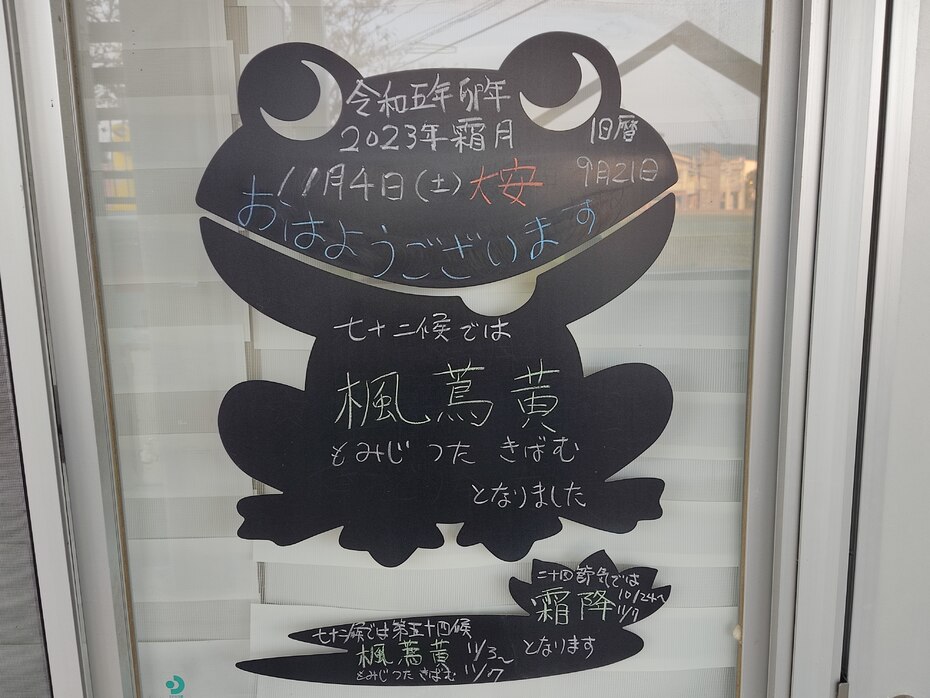 令和五年卯年
2023年霜月
旧暦
11月4日(土)大安
9月21日
おはようございます
七十二候では
楓蔦黄
もみじつたきばむ
となりました
二十四節気では
霜降 10/24〜
11/7
七十二候では第五十四候
楓蔦黄 11/3〜
となります
もみじつたきばむ 11/7